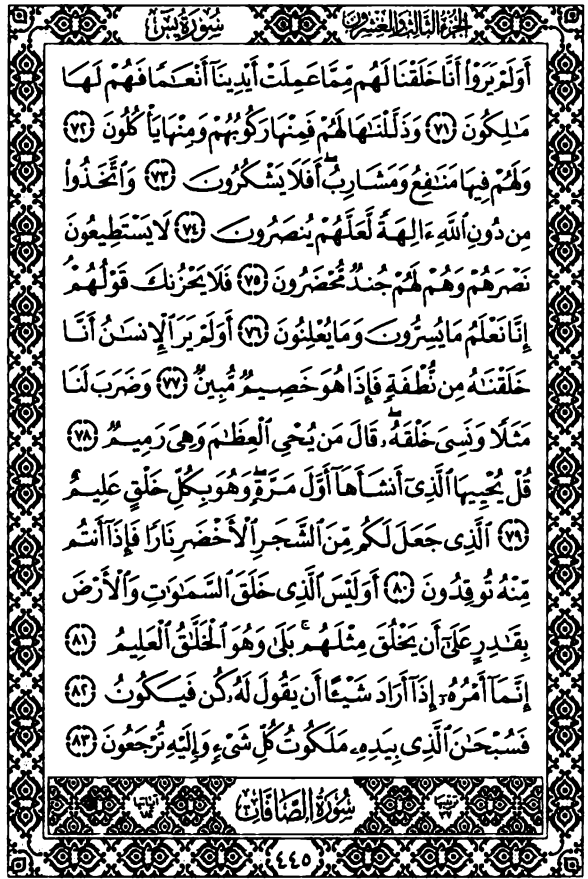 سُورَةُ يسٓ
الجُزْءُ الثَّالِثُ وَالعِشْرُونَ
أَوَلَمْ يَرَوْا۟ أَنَّا خَلَقْنَا لَهُم مِّمَّا عَمِلَتْ أَيْدِينَآ أَنْعَٰمًا فَهُمْ لَهَا
مَٰلِكُونَ ٧١ وَذَلَّلْنَٰهَا لَهُمْ فَمِنْهَا رَكُوبُهُمْ وَمِنْهَا يَأْكُلُونَ ٧٢
وَلَهُمْ فِيهَا مَنَٰفِعُ وَمَشَارِبُ ۖ أَفَلَا يَشْكُرُونَ ٧٣ وَٱتَّخَذُوا۟
مِن دُونِ ٱللَّهِ ءَالِهَةً لَّعَلَّهُمْ يُنصَرُونَ ٧٤ لَا يَسْتَطِيعُونَ
نَصْرَهُمْ وَهُمْ لَهُمْ جُندٌ مُّحْضَرُونَ ٧٥ فَلَا يَحْزُنكَ قَوْلُهُمْ ۘ
إِنَّا نَعْلَمُ مَا يُسِرُّونَ وَمَا يُعْلِنُونَ ٧٦ أَوَلَمْ يَرَ ٱلْإِنسَٰنُ أَنَّا
خَلَقْنَٰهُ مِن نُّطْفَةٍ فَإِذَا هُوَ خَصِيمٌ مُّبِينٌ ٧٧ وَضَرَبَ لَنَا
مَثَلًا وَنَسِىَ خَلْقَهُۥ ۖ قَالَ مَن يُحْىِ ٱلْعِظَٰمَ وَهِىَ رَمِيمٌ ٧٨
قُلْ يُحْيِيهَا ٱلَّذِىٓ أَنشَأَهَآ أَوَّلَ مَرَّةٍ ۖ وَهُوَ بِكُلِّ خَلْقٍ عَلِيمٌ
٧٩ ٱلَّذِى جَعَلَ لَكُم مِّنَ ٱلشَّجَرِ ٱلْأَخْضَرِ نَارًا فَإِذَآ أَنتُم
مِّنْهُ تُوقِدُونَ ٨٠ أَوَلَيْسَ ٱلَّذِى خَلَقَ ٱلسَّمَٰوَٰتِ وَٱلْأَرْضَ
بِقَٰدِرٍ عَلَىٰٓ أَن يَخْلُقَ مِثْلَهُم ۚ بَلَىٰ وَهُوَ ٱلْخَلَّٰقُ ٱلْعَلِيمُ ٨١
إِنَّمَآ أَمْرُهُۥٓ إِذَآ أَرَادَ شَيْـًٔا أَن يَقُولَ لَهُۥ كُن فَيَكُونُ ٨٢
فَسُبْحَٰنَ ٱلَّذِى بِيَدِهِۦ مَلَكُوتُ كُلِّ شَىْءٍ وَإِلَيْهِ تُرْجَعُونَ ٨٣
سُورَةُ الصَّافَاتِ
٤٤٥